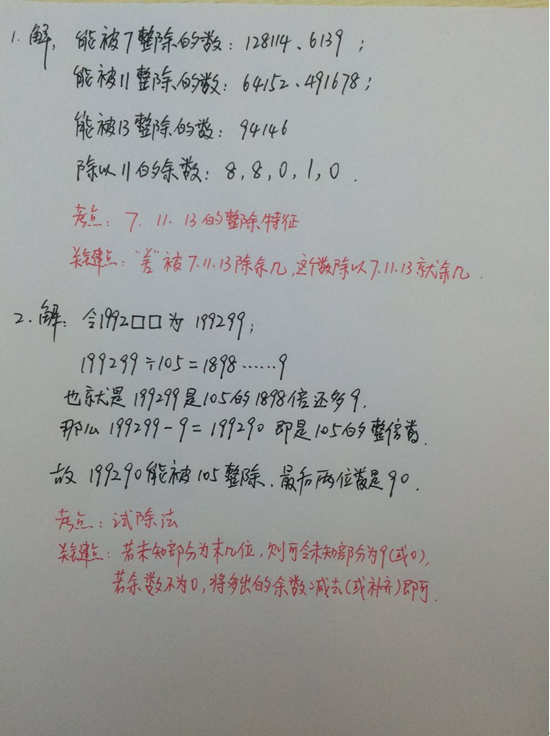 1. 解: 能被7整除的数: 128114、6139;
能被11整除的数: 64152、491678;
能被13整除的数: 94146
除以11的余数: 8, 8, 0, 1, 0.
考点: 7. 11. 13的整除特征
关键点: "差"被7.11.13除余几,这个数除以7.11.13就余几.
2. 解: 令1992□□为199299;
199299÷105=1898……9
也就是199299是105的1898倍还多9.
那么199299-9=199290即是105的整倍数.
故199290能被105整除,最后两位数是90.
考点: 试除法
关键点: 若未知部分为末几位,则可令未知部分为9(或0),
若余数不为0,将多出的余数减去(或补齐)即可.